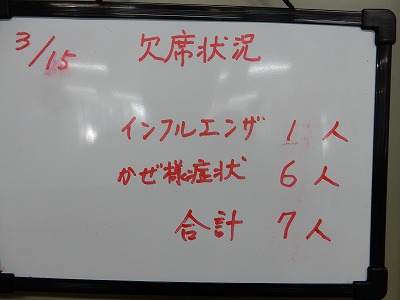 3/15 欠席状況
インフルエンザ 1人
かぜ様症状 6人
合計 7人